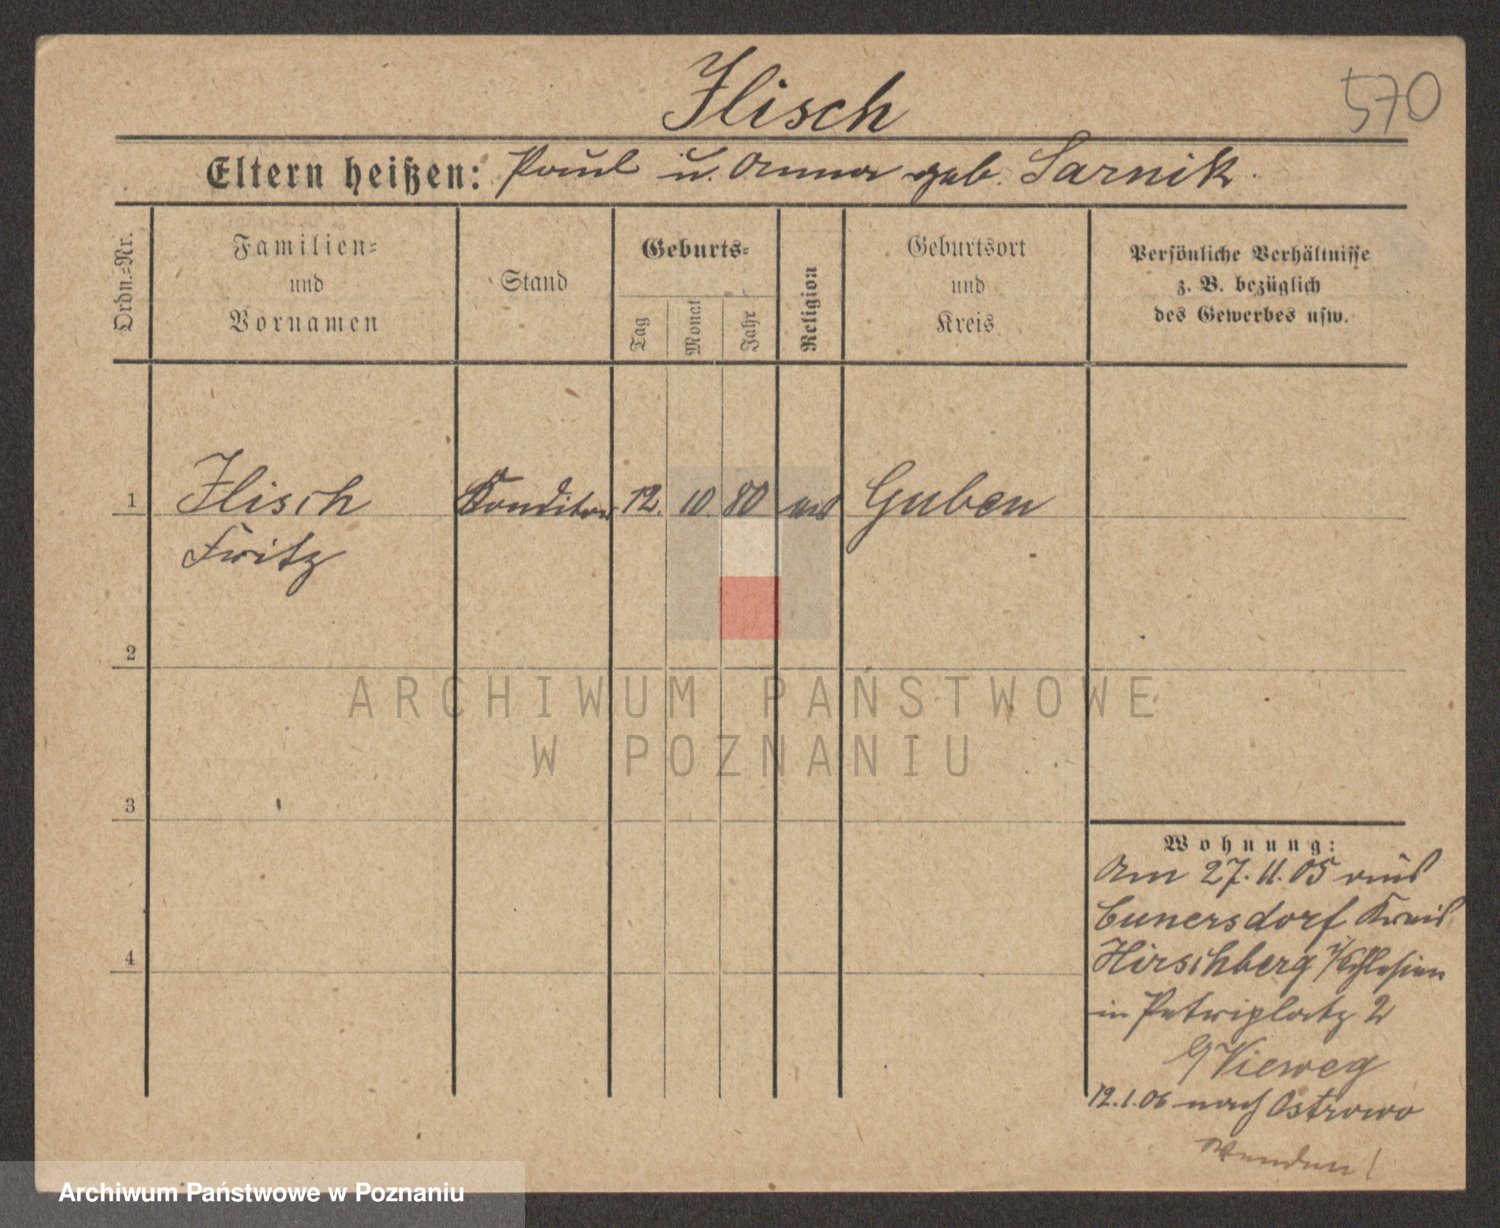 Ilisch
570
Eltern heißen: Paul u. Anna geb. Sarnik.
Ordn.=Nr.
Familien=
und
Vornamen
Stand
Geburts=
Tag
Monat
Jahr
Religion
Geburtsort
und
Kreis
Persönliche Verhältnisse
z. B. bezüglich
des Gewerbes usw.
1 Ilisch Konditor 12. 10 80 Guben
Fritz
2
ARCHIWUM PAŃSTWOWE
W POZNANIU
3
4
Wohnung:
Am 27.11.05 aus
Cunersdorf Kreis
Hirschberg i/Schlesien
in Petriplatz 2
b/ Vieweg
12.1.06 nach Ostrowo
Wenden!
Archiwum Państwowe w Poznaniu